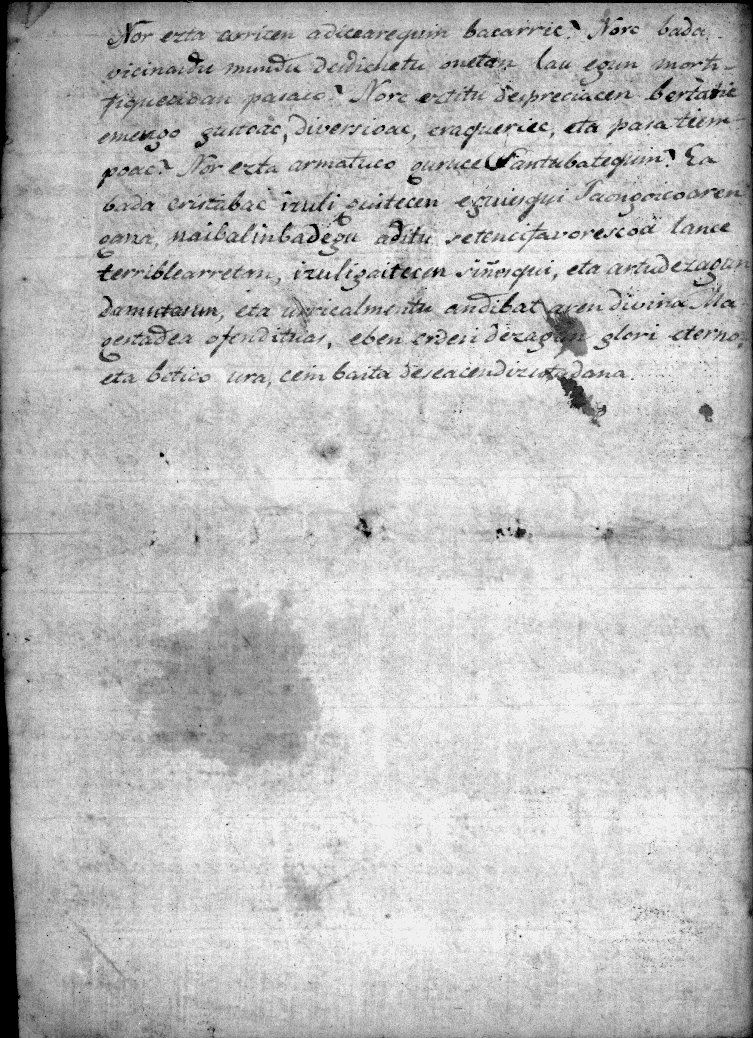 Nor ezta arritcen aditcearequin bacarric? Norc bada
vicinaidu mundu dedichetu onetan lau egun morti-
ficaciodan pasaic? Norc eztitu despreciacen bertatic
emengo gustoac, diversioac, eraqueriec, eta pasa tiem-
poac? Nor ezta armatuco guruce Santubatequin? Ea
bada cristabac izuli guitecen eguiesqui Jaongoicoaren
gana, naibalinbadegu aditu setenci favorescoa lance
terriblearretan, izuligaitecen siñesqui, eta artudezagun
damutasun, eta urricalmentu andibat aren divina Ma
gestadea ofendituas, eben erdesi dezagun glori eterno,
eta betico ura, cein baita deseacendizutadana.